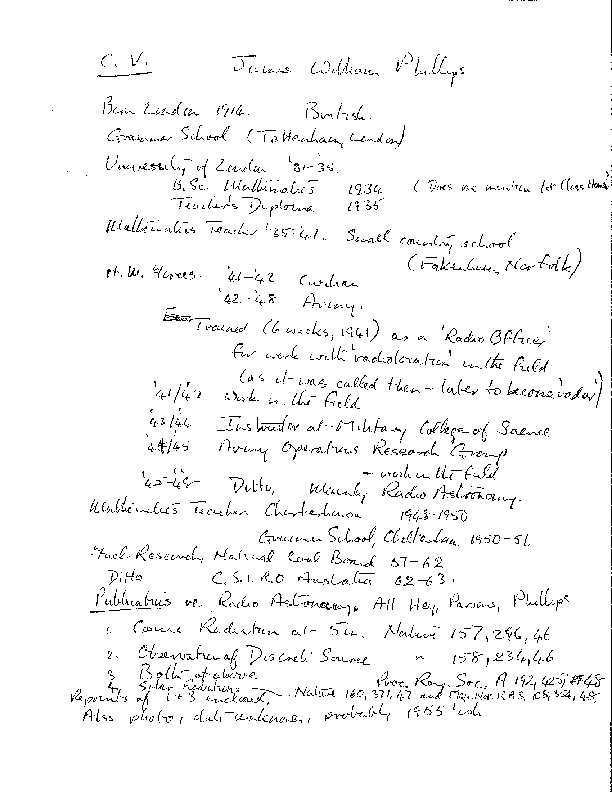 C. V. James William Phillips
Born London 1914. British.
Grammar School (Tottenham, London)
University of London '31-35.
B.Sc. Mathematics 1934 (Does one mention 1st Class Hons
Teacher's Diploma 1935
Mathematics Teacher '35-'41. Small country school
(Fakenham, Norfolk)
H.M. Forces. '41-'42 Civilian
'42-'48 Army.
Trained (6 weeks, 1941) as a 'Radio Officer'
for work with 'radiolocation' in the field
(as it was called then - later to become 'radar')
'41/'42 work in the field
'43/'44 Instructor at Military College of Science
'44/'45 Army Operations Research Group
- work in the field
'45-'48 Ditto, Mainly Radio Astronomy.
Mathematics Teacher Charterhouse 1948-1950
Grammar School, Cheltenham. 1950-51.
Fuel Research, National Coal Board 51-62
Ditto C.S.I.R.O Australia 62-63.
Publications re. Radio Astronomy, All Hey, Parsons, Phillips
1. Cosmic Radiation at 5m. Nature 157, 296, 46
2. Observation of Discrete Source " 158, 234, 46
3 Both of above Proc. Roy. Soc. A 192, 425, 48
4. Solar Radiations Nature 160, 371, 47 and Mon. Not. R.A.S. 108, 354, 48,
Reprints of 1+3 enclosed.
Also photo, date unknown, probably 1955 'ish